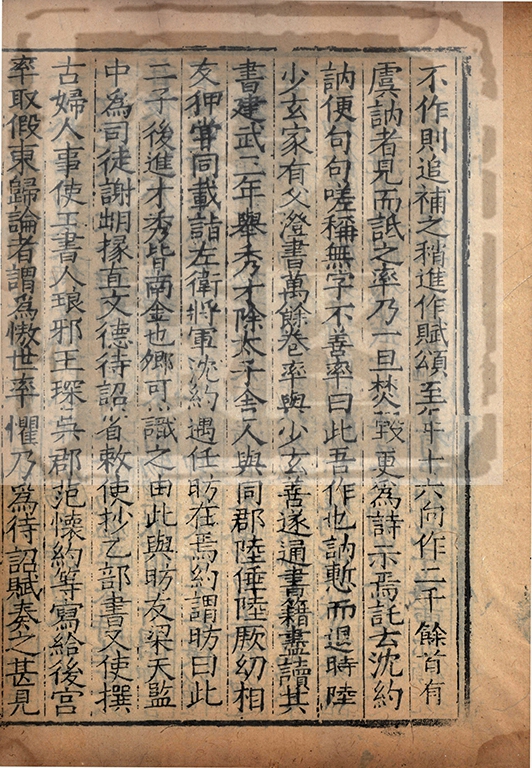 不作則追補之稍進作賦頌至年十六向作二千餘首有
虞訥者見而詆之率乃一旦焚毀更爲詩示焉託云沈約
訥便句句嗟稱無字不善率曰此吾作也訥慙而退時陸
少玄家有父澄書萬餘卷率與少玄善遂通書籍盡讀其
書建武三年舉秀才除太子舍人與同郡陸倕陸厥幼相
友狎甞同載詣左衛將軍沈約遇任昉在焉約謂昉曰此
二子後進才秀皆南金也卿可識之由此與昉友梁天監
中爲司徒謝朏掾直文德待詔省敕使抄乙部書又使撰
古婦人事使工書人琅邪王琛吳郡范懷約等寫給後宮
率取假東歸論者謂爲慠世率懼乃爲待詔賦奏之甚見